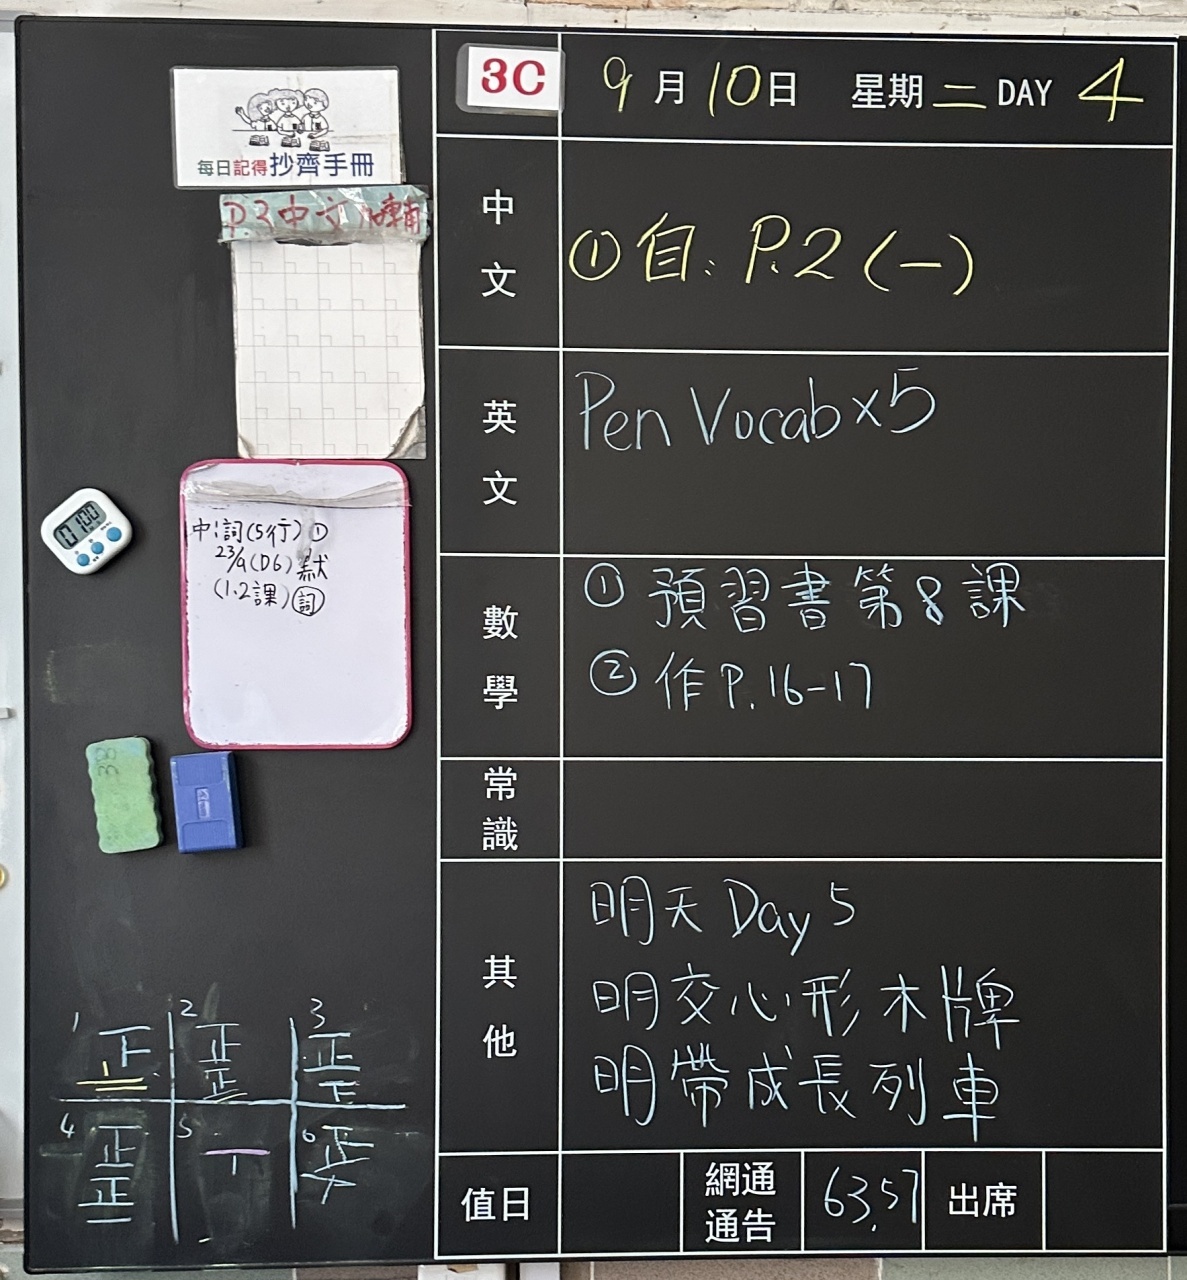 3C 9月10日 星期二 DAY 4
每日記得抄齊手冊
P3中文
中文 ①自: P.2 (一)
英文 Pen Vocab×5
中:詞(5行)①
23/9(D6)默
(1.2課)詞
數學 ①預習書第8課
②作P.16-17
3B
常識
其他 明天Day 5
明交心形木牌
明帶成長列車
1 正 2 正正 3 正
4 正正 5 6 正
值日 網通通告 63,57 出席